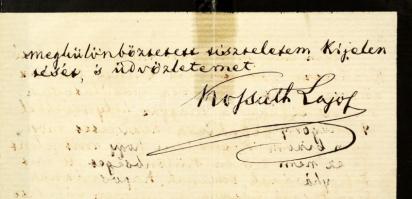 megkülönböztetett tiszteletem kijelen
tését, s üdvözletemet
Kossuth Lajos